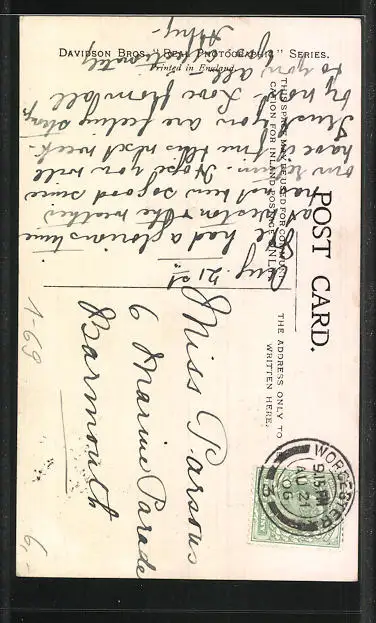 DAVIDSON BROS. "REAL PHOTOGRAPHIC" SERIES.
Printed in England.
POST CARD.
THIS SPACE MAY BE USED FOR COMMUNI-
CATION FOR INLAND POSTAGE ONLY.
THE ADDRESS ONLY TO BE
WRITTEN HERE.
Aug. 21st
We had a glorious time
at Weston & the weather
has been so good since
our return. Hope you will
have it fine this next week.
Trust you are feeling
by now. Love from all
to you all
Affectionately
Miss Parsons
6 Marine Parade
Barmouth
WORCESTER
9.15 PM
AU 21
06
1-69
6,-